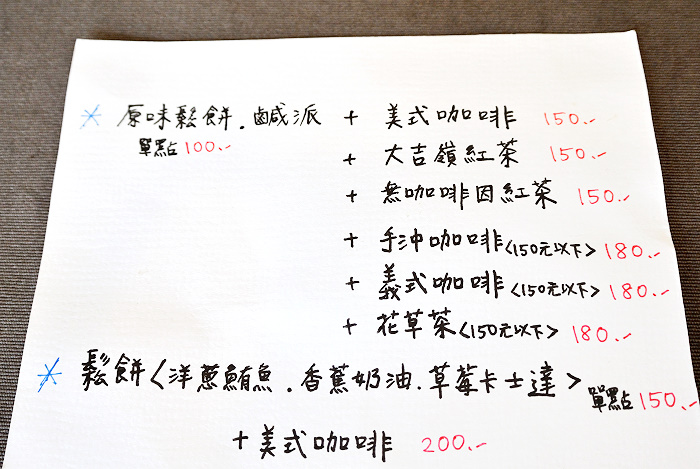 * 原味鬆餅.鹹派 + 美式咖啡 150.-
單點 100.-
+ 大吉嶺紅茶 150.-
+ 無咖啡因紅茶 150.-
+ 手沖咖啡<150元以下> 180.-
+ 義式咖啡<150元以下> 180.-
+ 花草茶<150元以下> 180.-
* 鬆餅<洋蔥鮪魚.香蕉奶油.草莓卡士達> 單點 150.-
+ 美式咖啡 200.-